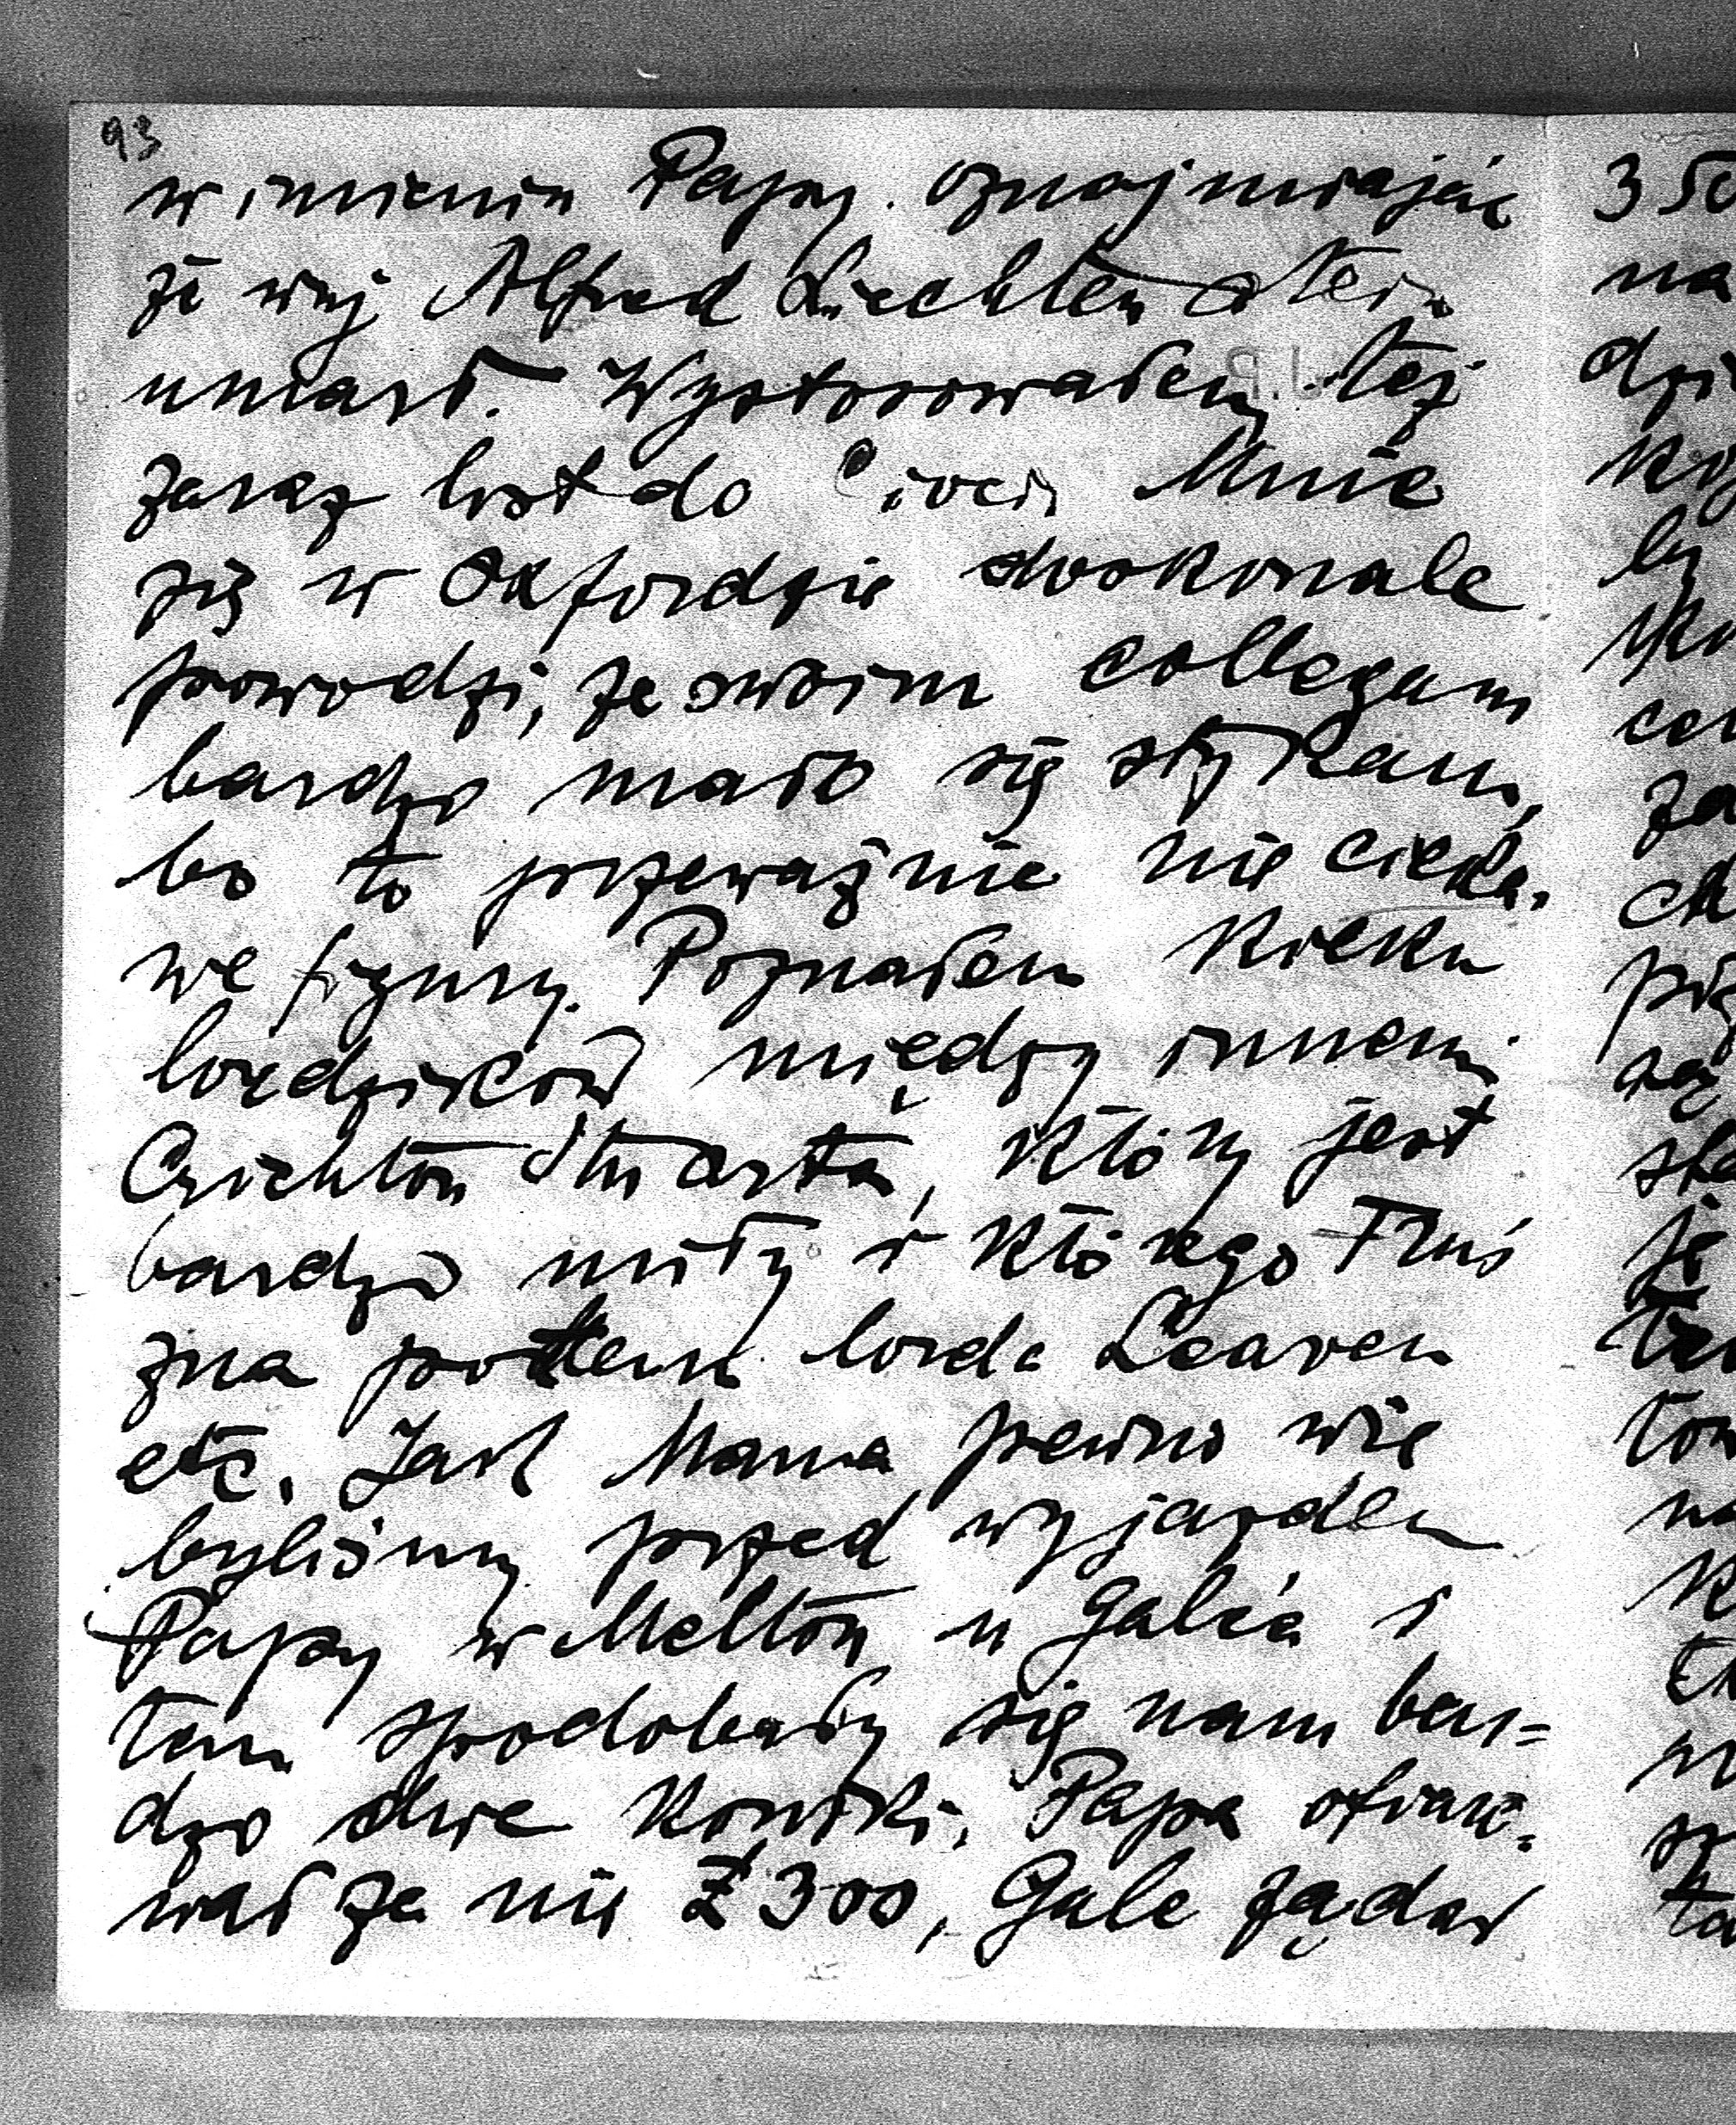 93
w imieniu Papy oznajmiając
że wuj Alfred Liechtenstein
umarł. Wystosowałem też
zaraz list do Cioci Mnie
się w Oxfordzie doskonale
powodzi, ze swoim collegam
bardzo mało się stykam,
bo to przeważnie nie cieka-
we figury. Poznałem kilku
lordzików między innemi
Crichton Stuarta, który jest
bardzo miły i którego
zna potem lorda
etc. Jak Mama pewno wie
byliśmy przed wyjazdem
Papy w Melton u Gale'a i
tam spodobały się nam bar-
dzo dwie koniki, Papa ofiaro-
wał za nie £300, Gale żądał
350
na